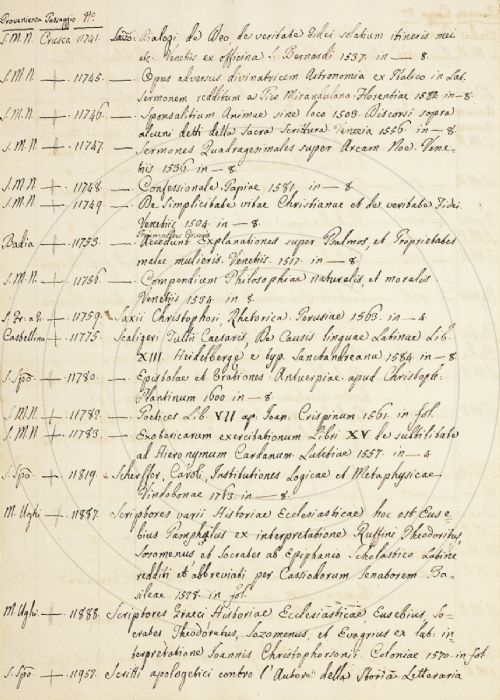 Provenienza Passaggio N.o
S.M.N. Crusca 11741. Dialogi de Deo, de veritate Fidei solatium itineris mei
etc. Venetiis ex officina S. Bernardi 1537. in — 8.
S.M.N. — + — 11745. — Opus adversus divinatricem Astronomia ex Italico in Lat.
Sermonem redditum a Pico Mirandulano Florentiae 1582 in — 8.
S.M.N. — + — 11746 — Sponsalitium Animae sine loco 1503 Discorsi sopra
alcuni detti della Sacra Scrittura Venezia 1556. in — 8.
S.M.N. — + — 11747. — Sermones Quadragesimales super Arcam Noe. Vene-
tiis 1536 in — 8.
S.M.N. — + — 11748 — Confessionale Papiae 1581 in — 8.
S.M.N. — + — 11749. — De Simplicitate vitae Christianae et de veritate Fidei.
Venetiis 1504. in — 8.
Badia — + — 11753 — Accedunt Explanationes super Psalmos, et Proprietates
malae mulieris. Venetiis. 1517. in — 8.
S.M.N. — + — 11756. — Compendium Philosophiae naturalis, et moralis
Venetiis 1534. in 8.
— + — 11759. Saxii Christophori, Rhetorica. Perusiae 1563. in — 4
Casbettina — + — 11775. Scaligeri Jullii Caesaris, De Causis linguae Latinae Lib.
XIII. Heidelbergae e typ. Sanctandreana 1584. in — 8
S. Spo. — + — 11780. — Epistolae et Orationes. Antuerpiae. apud Christoph.
Plantinum 1600 in — 8.
S.M.N. — + — 11782. — Poetices Lib. VII ap. Joan. Crispinum 1561. in fol.
S.M.N. — + — 11783. — Exotericarum exercitationum Libri XV de subtilitate
ad Hieronymum Cardanum. Lutetiae 1557. in — 4
S. Spo. — + — 11819. Scherffer, Caroli, Institutiones Logicae et Metaphysicae
Vindobonae 1763. in — 8.
M. Ughi — + — 11887. Scriptores varii Historiae Ecclesiasticae hoc est Euse-
bius Pamphilus ex interpretatione Ruffini Theodoritus,
Sozomenus et Socrates ab Epiphanio Scholastico Latine
redditi et abbreviati per Cassiodorum Senatorem. Ba-
sileae. 1528. in fol.
M. Ughi. — + — 11888. Scriptores Graeci Historiae Ecclesiasticae, Eusebius, So-
crates Theodoretus, Sozomenus, et Evagrius ex lat. in
terpretatione Joannis Christophorsonii. Coloniae 1570. in fol.
S. Spo. — + — 11952. Scritti apologetici contro l'Autore della Storia Letteraria